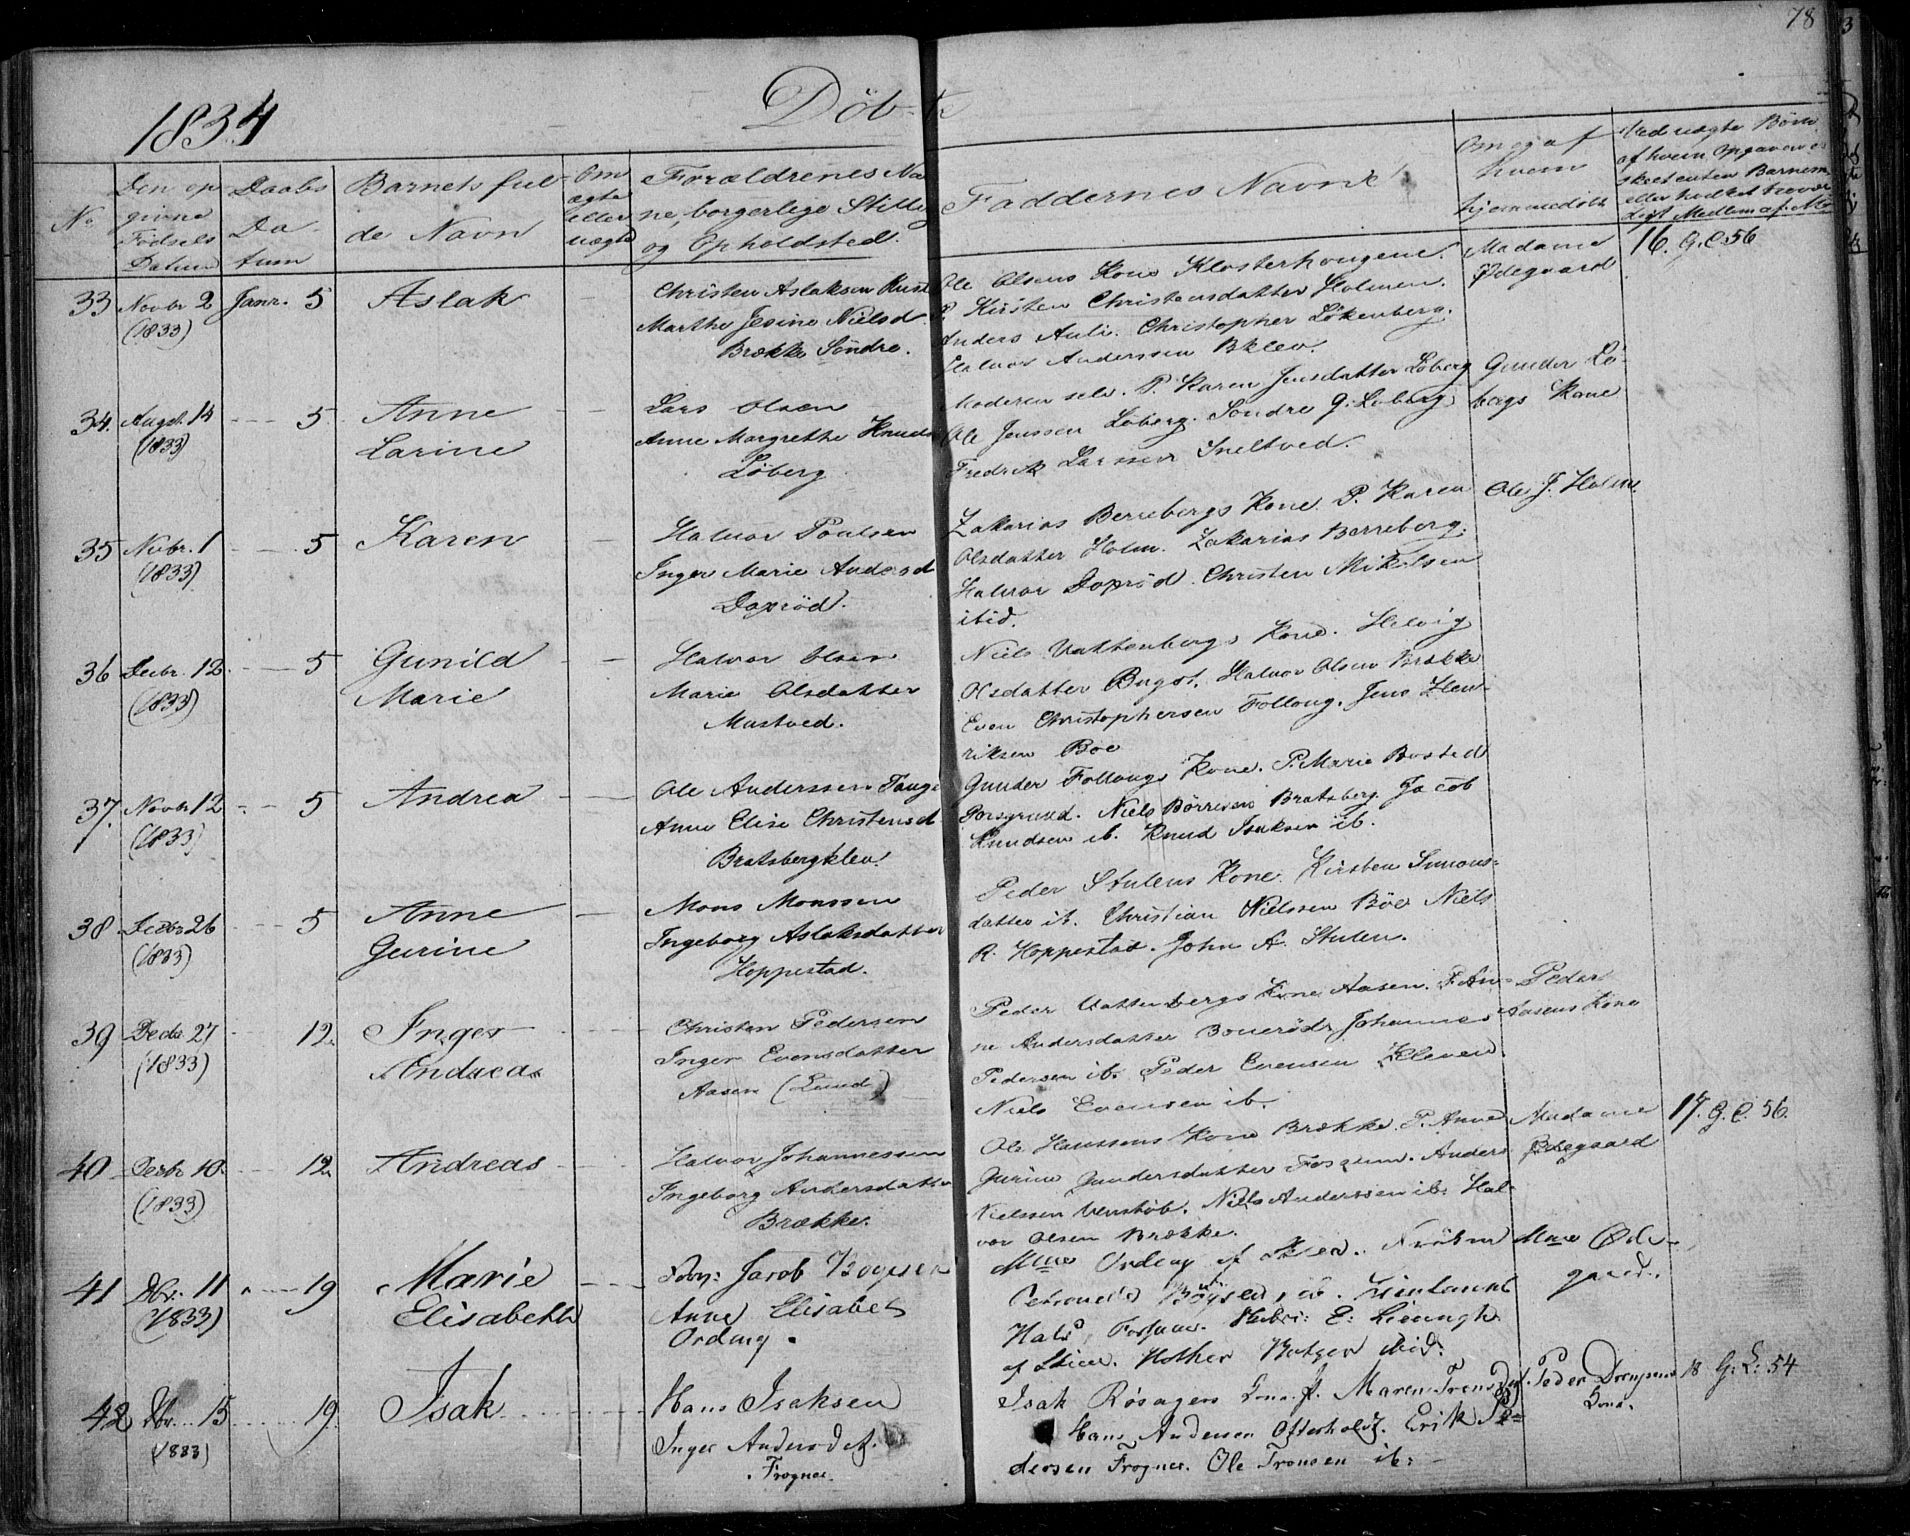 78
1834
Döbte
No
Den op
givne
Födsels
Datum
Daabs
Da
tum
Barnets ful
de Navn
Om
ægte
eller
uægte
Forældrenes Na
ne, borgerlige Stilling
og Opholdsted.
Faddernes Navne
Om og af
hvem
hjemmedöbt
Ved uægte Børn
af hvem Opgaven er
skeet enten Barnem
eller hvilket trovær
digt Medlem af
33 Novbr 2 Janr. 5 Aslak
(1833)
Christen Aslaksen
Marthe Jesine Nielsd
Brække Söndre.
Ole Olsens Kone Klosterhougene.
P. Kirsten Christensdatter Holmen.
Anders Auli. Christopher Lökenberg.
Halvor Anderssen Bklev.
Madame
Ødegaard
16. G.C. 56
34. Augst. 14 5 Anne
(1833) Larine
Lars Olsen
Anne Margrethe Knuds
Löberg
Moderen selv. P. Karen Jensdatter Löberg
Ole Jenssen Löberg. Söndre G. Löberg
Fredrik Larssen Sneltved.
Gunder Lö-
bergs Kone
35 Novbr. 1 5 Karen
(1833)
Halvor Poulsen
Inger Marie Andersd
Doxröd.
Zakarias Berrebergs Kone P. Karen
Olsdatter Holm. Zakarias Berreberg.
Halvor Doxröd. Christen Mikelsen
ibid.
Ole J. Holm.
36 Decbr. 12. 5 Gunild
(1833) Marie
Halvor Olsen
Marie Olsdatter
Mustved.
Niels Vattenbergs Kone. Helvig
Olsdatter Bugst. Halvor Olsen Brække
Even Christophersen Follaug. Jens Hen-
riksen Böe
37. Novbr 12 5 Andrea
(1833)
Ole Anderssen
Anne Elise Christensd
Bratsbergklev.
Gunder Follaugs Kone. P. Marie Bosted
Porsgrund. Niels Börresen Bratsberg. Jacob
Knudsen ib. Knud Isaksen ib.
38. Decbr 26 5 Anne
(1833) Gurine
Mons Monssen
Ingeborg Aslaksdatter
Hoppestad.
Peder Stulens Kone. Kirsten Simons-
datter ib. Christian Nielssen Böe Niels
R. Hoppestad. John A. Stulen.
39 Decbr 27 12. Inger
(1833) Andrea
Christen Pedersen
Inger Evensdatter
Aasen (Lund)
Peder Vattenbergs Kone Aasen. P. An-
ne Andersdatter Bonerödr Johannes
Pedersen ib. Peder Evensen Kleven.
Niels Evensen ib.
Peder
Aasens Kone
40 Decbr 10. 12 Andreas
(1833)
Halvor Johannessen
Ingeborg Andersdatter
Brække.
Ole Hanssens Kone Brække. P. Anne
Gurine Gundersdatter Fossum. Anders
Nielssen Venstöb. Niels Anderssen ib. Hal-
vor Olsen Brække.
Madame
Ødegaard
17. G.C. 56.
41 Dbr. 11 19 Marie
(1833) Elisabeth
Jacob Boysen
Anne Elisabet
Ording.
Mme Ording af Skien. Frökn
Petronella Böysen, ib.
Hals, Fossum. E:
af Skien. Hother Bötger ibid.
Mme Öde-
gaard.
42 Dbr. 15 19. Isak
(1833)
Hans Isaksen
Inger Andersd.
Frogner.
Isak Røsagers Kone. P. Maren Tronsd.
Hans Andersen Ofterholt. Erik Pe-
dersen Frogner. Ole Tronsen ib:
Peder
Kone.
18 G: L: 54